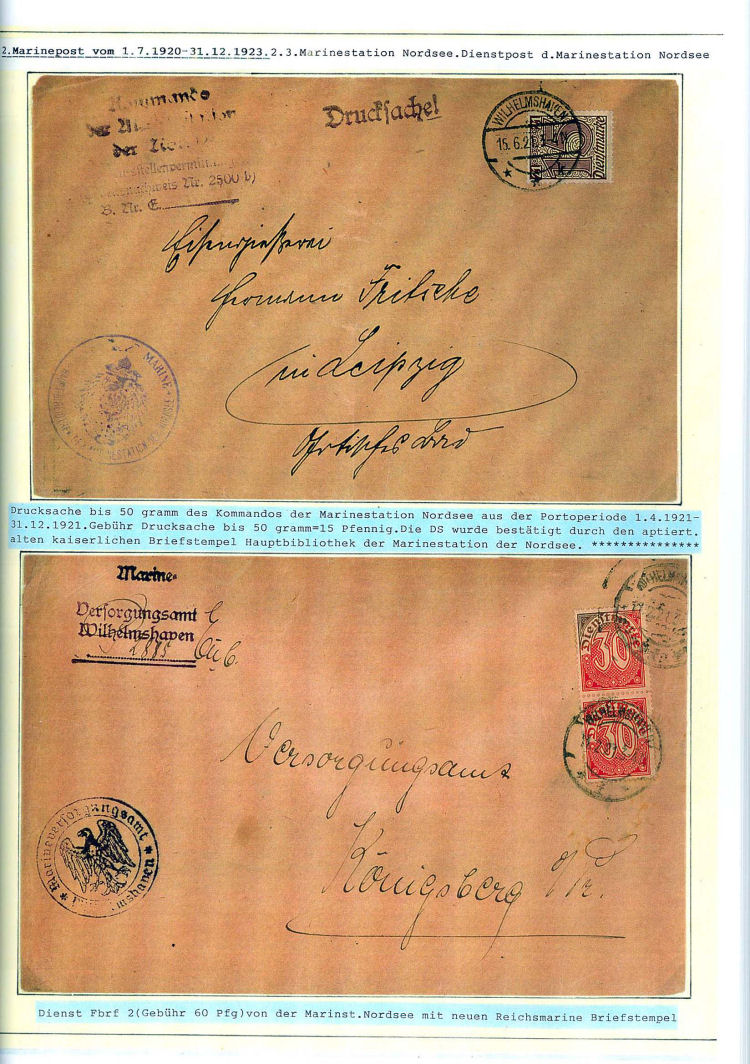 2.Marinepost vom 1.7.1920-31.12.1923.2.3.Marinestation Nordsee.Dienstpost d.Marinestation Nordsee
Kommando
der Marinestation
der
Drucksache!
WILHELMSHAVEN
15.6.21
15
Dienstmarke
21
Nr. 2500 b)
B. Nr. E.
Eisengießerei
Hermann Fritsche
in Leipzig
MARINE
Drucksache bis 50 gramm des Kommandos der Marinestation Nordsee aus der Portoperiode 1.4.1921-
31.12.1921.Gebühr Drucksache bis 50 gramm=15 Pfennig.Die DS wurde bestätigt durch den aptiert.
alten kaiserlichen Briefstempel Hauptbibliothek der Marinestation der Nordsee. ***************
Marine-
Versorgungsamt
Wilhelmshaven
2885
WILHELMSHAVEN
Dienstmarke
30
30
Versorgungsamt
Königsberg i/Pr.
Marineversorgungsamt
Wilhelmshaven
Dienst Fbrf 2(Gebühr 60 Pfg)von der Marinst.Nordsee mit neuen Reichsmarine Briefstempel